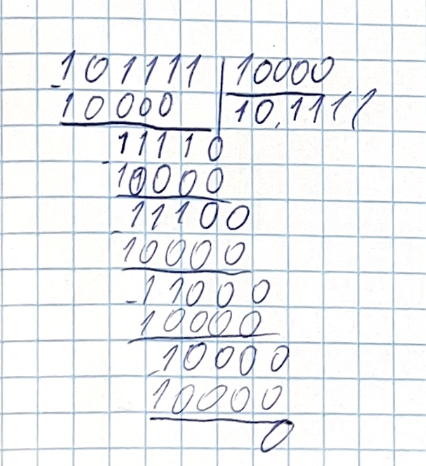 101111 | 10000
- 10000 | 10,1111
- 11110
10000
- 11100
10000
- 11000
10000
- 10000
10000
0